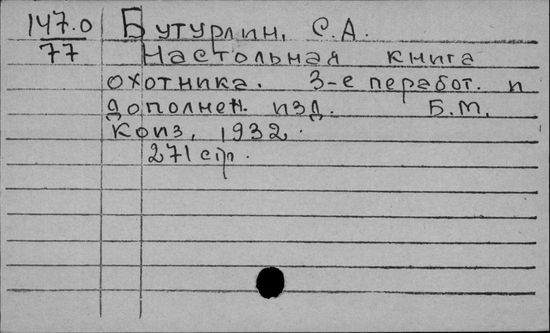 147.0 Бутурлин, С.А.
77 Настольная книга
охотника. 3-е перабот. и
дополнен. изд. Б.М.
Коиз, 1932.
271 стр.